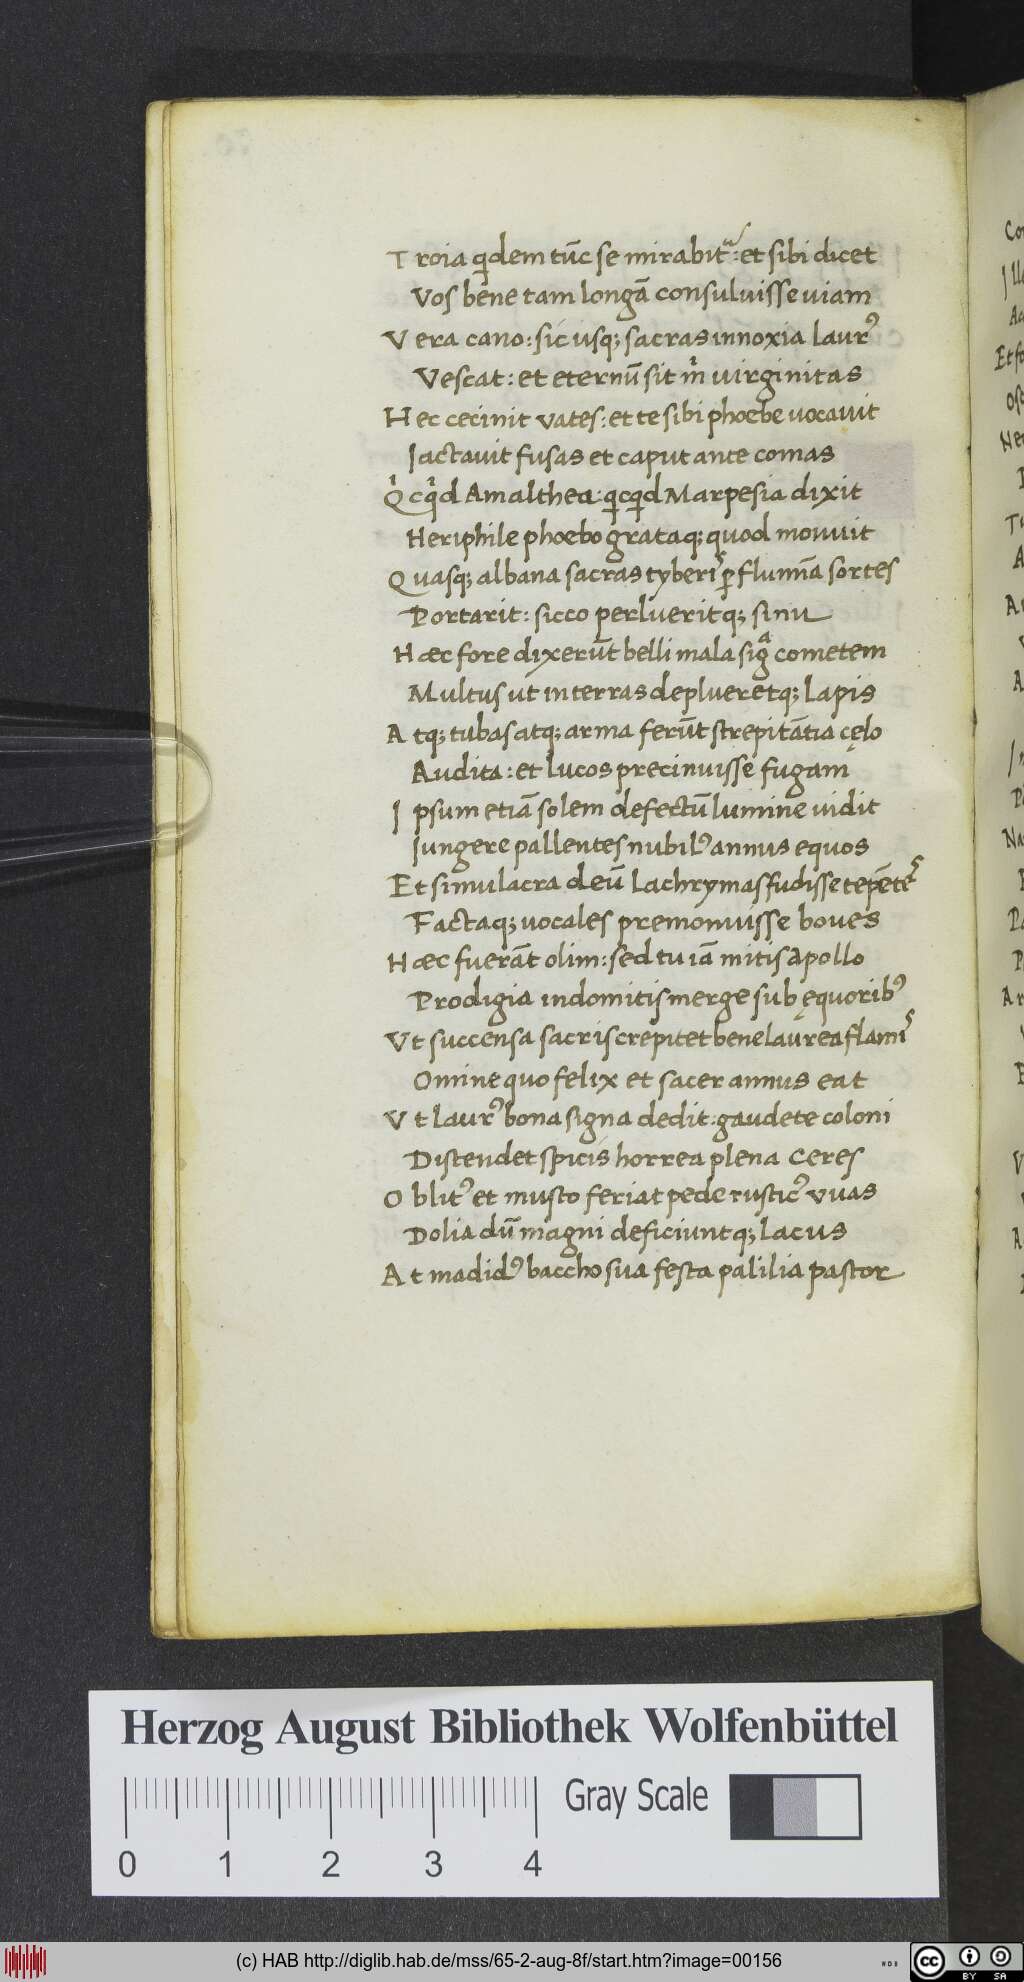 Troia qdem tūc se mirabit᷑: et sibi dicet
Vos bene tam longā consuluisse uiam
Vera cano: sic usq; sacras innoxia laurꝰ
Vescat: et eternū sit m̉ uirginitas
Hec cecinit vates: et te sibi phoebe uocauit
Iactauit fusas et caput ante comas
Qcqd Amalthea: qcqd Marpesia dixit
Heriphile phoebo grataq; quod monuit
Quasq; albana sacras tyberis p flumīa sortes
Portarit: sicco perlueritq; sinu
Hæc fore dixerūt belli mala sigᵃ cometem
Multus ut in terras deplueretq; lapis
Atq; tubas atq; arma ferūt strepitātia cęlo
Audita: et lucos precinuisse fugam
Ipsum etiā solem defectū lumine uidit
Iungere pallentes nubilꝰ annus equos
Et simulacra deū lachrymas fudisse tepētes
Factaq; uocales premonuisse boues
Hæc fuerāt olim: sed tu iā mitis apollo
Prodigia indomitis merge sub ęquoribꝰ
Vt succensa sacris crepitet bene laurea flamis
Omine quo felix et sacer annus eat
Vt laurꝰ bona signa dedit: gaudete coloni
Distendet spicis horrea plena Ceres
Oblitꝰ et musto feriat pede rusticꝰ vuas
Dolia dū magni deficiuntq; lacus
At madidꝰ baccho sua festa palilia pastor
Herzog August Bibliothek Wolfenbüttel
Gray Scale
0 1 2 3 4
(c) HAB http://diglib.hab.de/mss/65-2-aug-8f/start.htm?image=00156